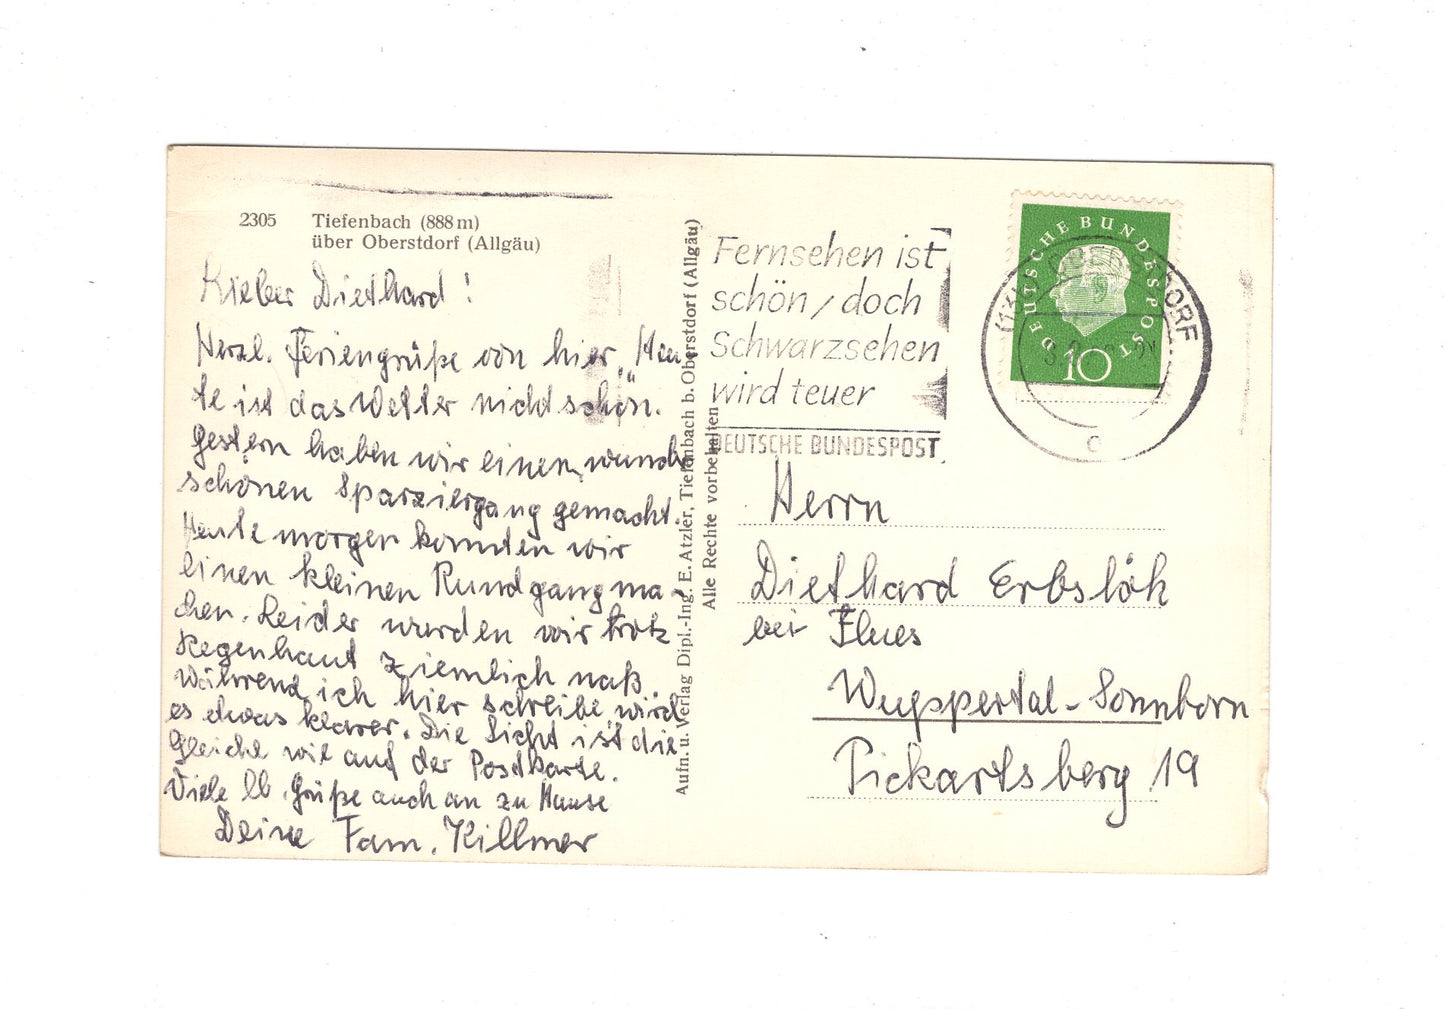 2305 Tiefenbach (888 m)
über Oberstdorf (Allgäu)
Lieber Diethard!
Herzl. Feriengrüße von hier. Heu-
te ist das Wetter nicht schön.
Gestern haben wir einen wunder
schönen Sparziergang gemacht.
Heute morgen konnten wir
einen kleinen Rundgang ma-
chen. Leider wurden wir trotz
Regenhaut ziemlich naß.
Während ich hier schreibe, wird
es etwas klarer. Die Sicht ist die
Gleiche wie auf der Postkarte.
Viele lb. Grüße auch an zu Hause
Deine Fam. Killmer
Aufn. u. Verlag Dipl.-Ing. E. Atzler, Tiefenbach b. Oberstdorf (Allgäu)
Alle Rechte vorbehalten
Fernsehen ist
schön, doch
Schwarzsehen
wird teuer
DEUTSCHE BUNDESPOST
DEUTSCHE BUNDESPOST
10
OBERSTDORF
c
Herrn
Diethard Erbslöh
bei Flues
Wuppertal-Sonnborn
Pickartsberg 19